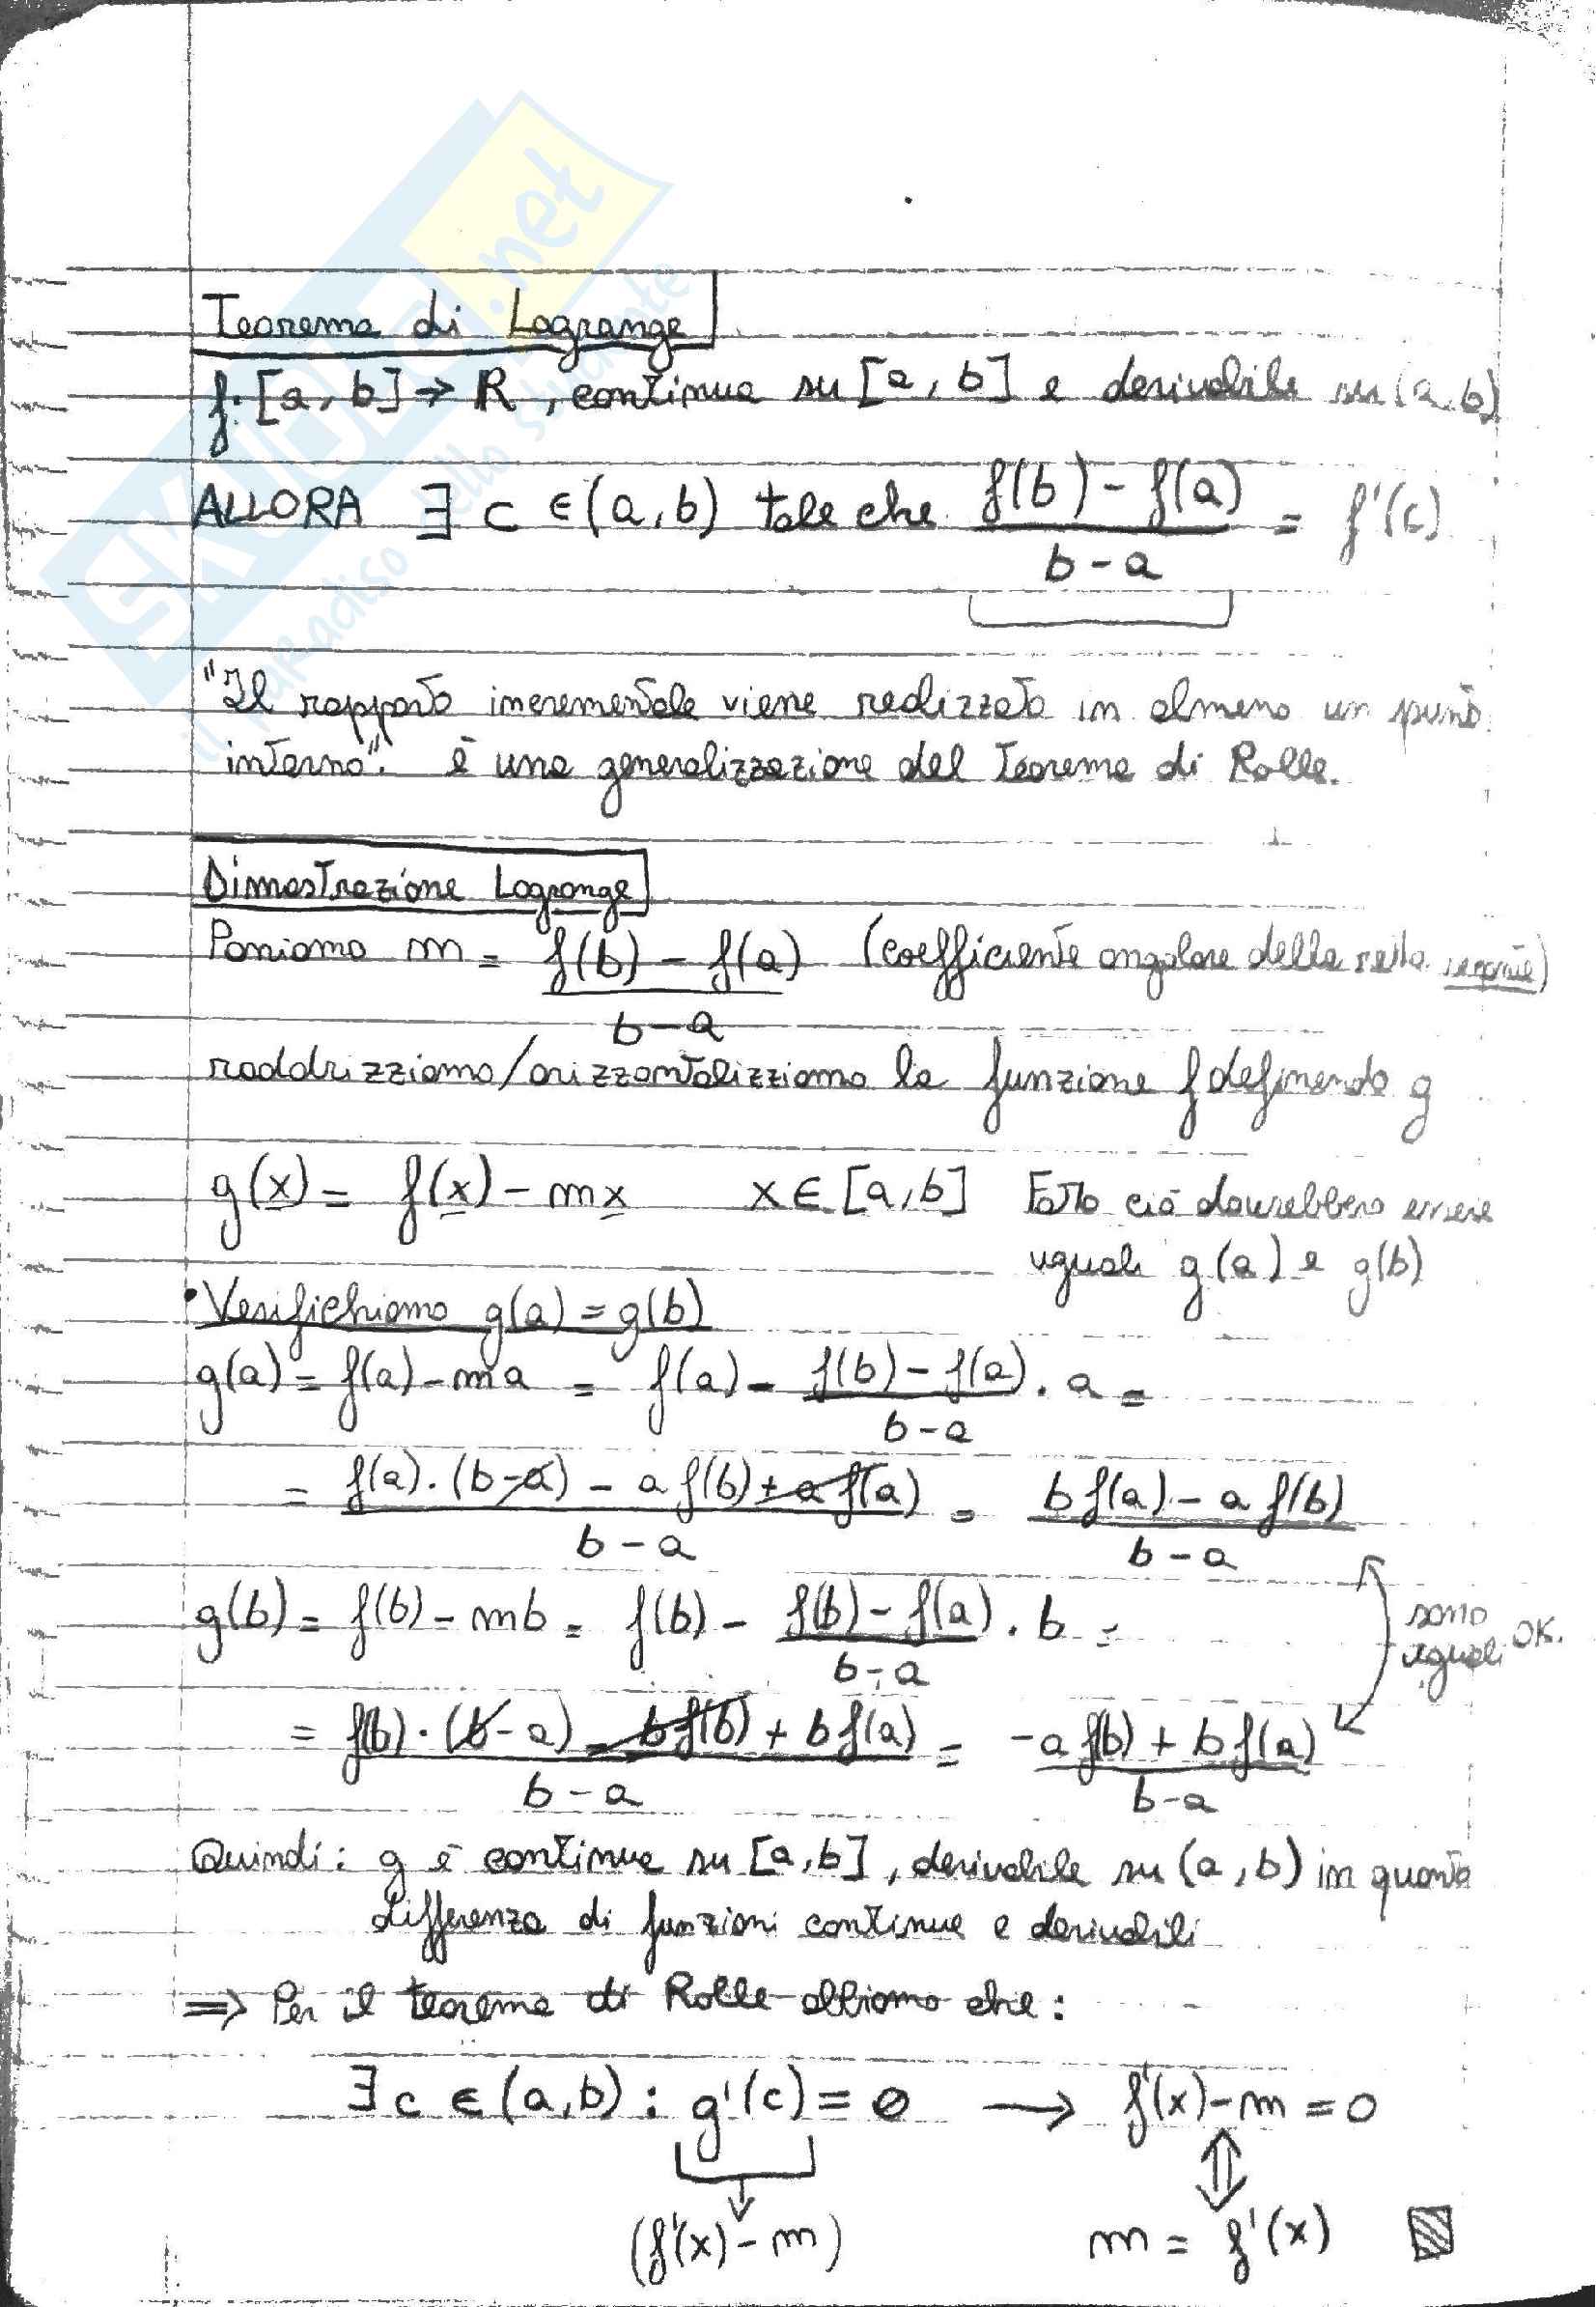 SKUOLA.net
il paradiso dello studente
Teorema di Lagrange
f: [a, b] → ℝ, continua su [a, b] e derivabile su (a, b)
ALLORA ∃ c ∈ (a, b) tale che (f(b) - f(a))/(b - a) = f'(c)
"Il rapporto incrementale viene realizzato in almeno un punto
interno". è una generalizzazione del Teorema di Rolle.
Dimostrazione Lagrange
Poniamo m = (f(b) - f(a))/(b - a) (coefficiente angolare della retta secante)
raddrizziamo/orizzontalizziamo la funzione f definendo g
g(x) = f(x) - mx x ∈ [a, b] Fatto ciò dovrebbero essere
uguali g(a) e g(b)
• Verifichiamo g(a) = g(b)
g(a) = f(a) - ma = f(a) - (f(b) - f(a))/(b - a) · a =
= (f(a) · (b - a) - a f(b) + a f(a))/(b - a) = (b f(a) - a f(b))/(b - a)
g(b) = f(b) - mb = f(b) - (f(b) - f(a))/(b - a) · b =
sono uguali OK.
= (f(b) · (b - a) - b f(b) + b f(a))/(b - a) = (-a f(b) + b f(a))/(b - a)
Quindi: g è continua su [a, b], derivabile su (a, b) in quanto
differenza di funzioni continue e derivabili
⇒ Per il teorema di Rolle abbiamo che:
∃ c ∈ (a, b) : g'(c) = 0 → f'(x) - m = 0
⇕
(f'(x) - m) m = f'(x)